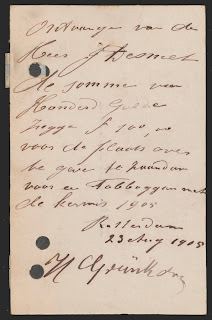 Ontvangen van de
Heer J Desmet
de somme van
Honderd Gulden
zegge f 100,00
voor de plaats over
te gave te Zaandam
voor en tobboggan met
de kermis 1905
Rotterdam
23 Aug 1905
H Grünkorn